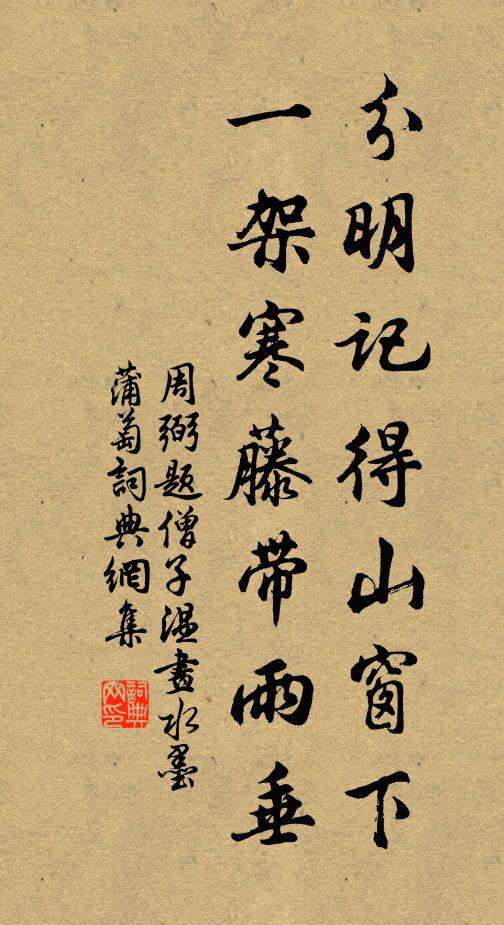 分明记得山窗下
一架寒藤带雨垂
周弼题僧子温畫水墨
蒲萄詞典網集
詞典
网印